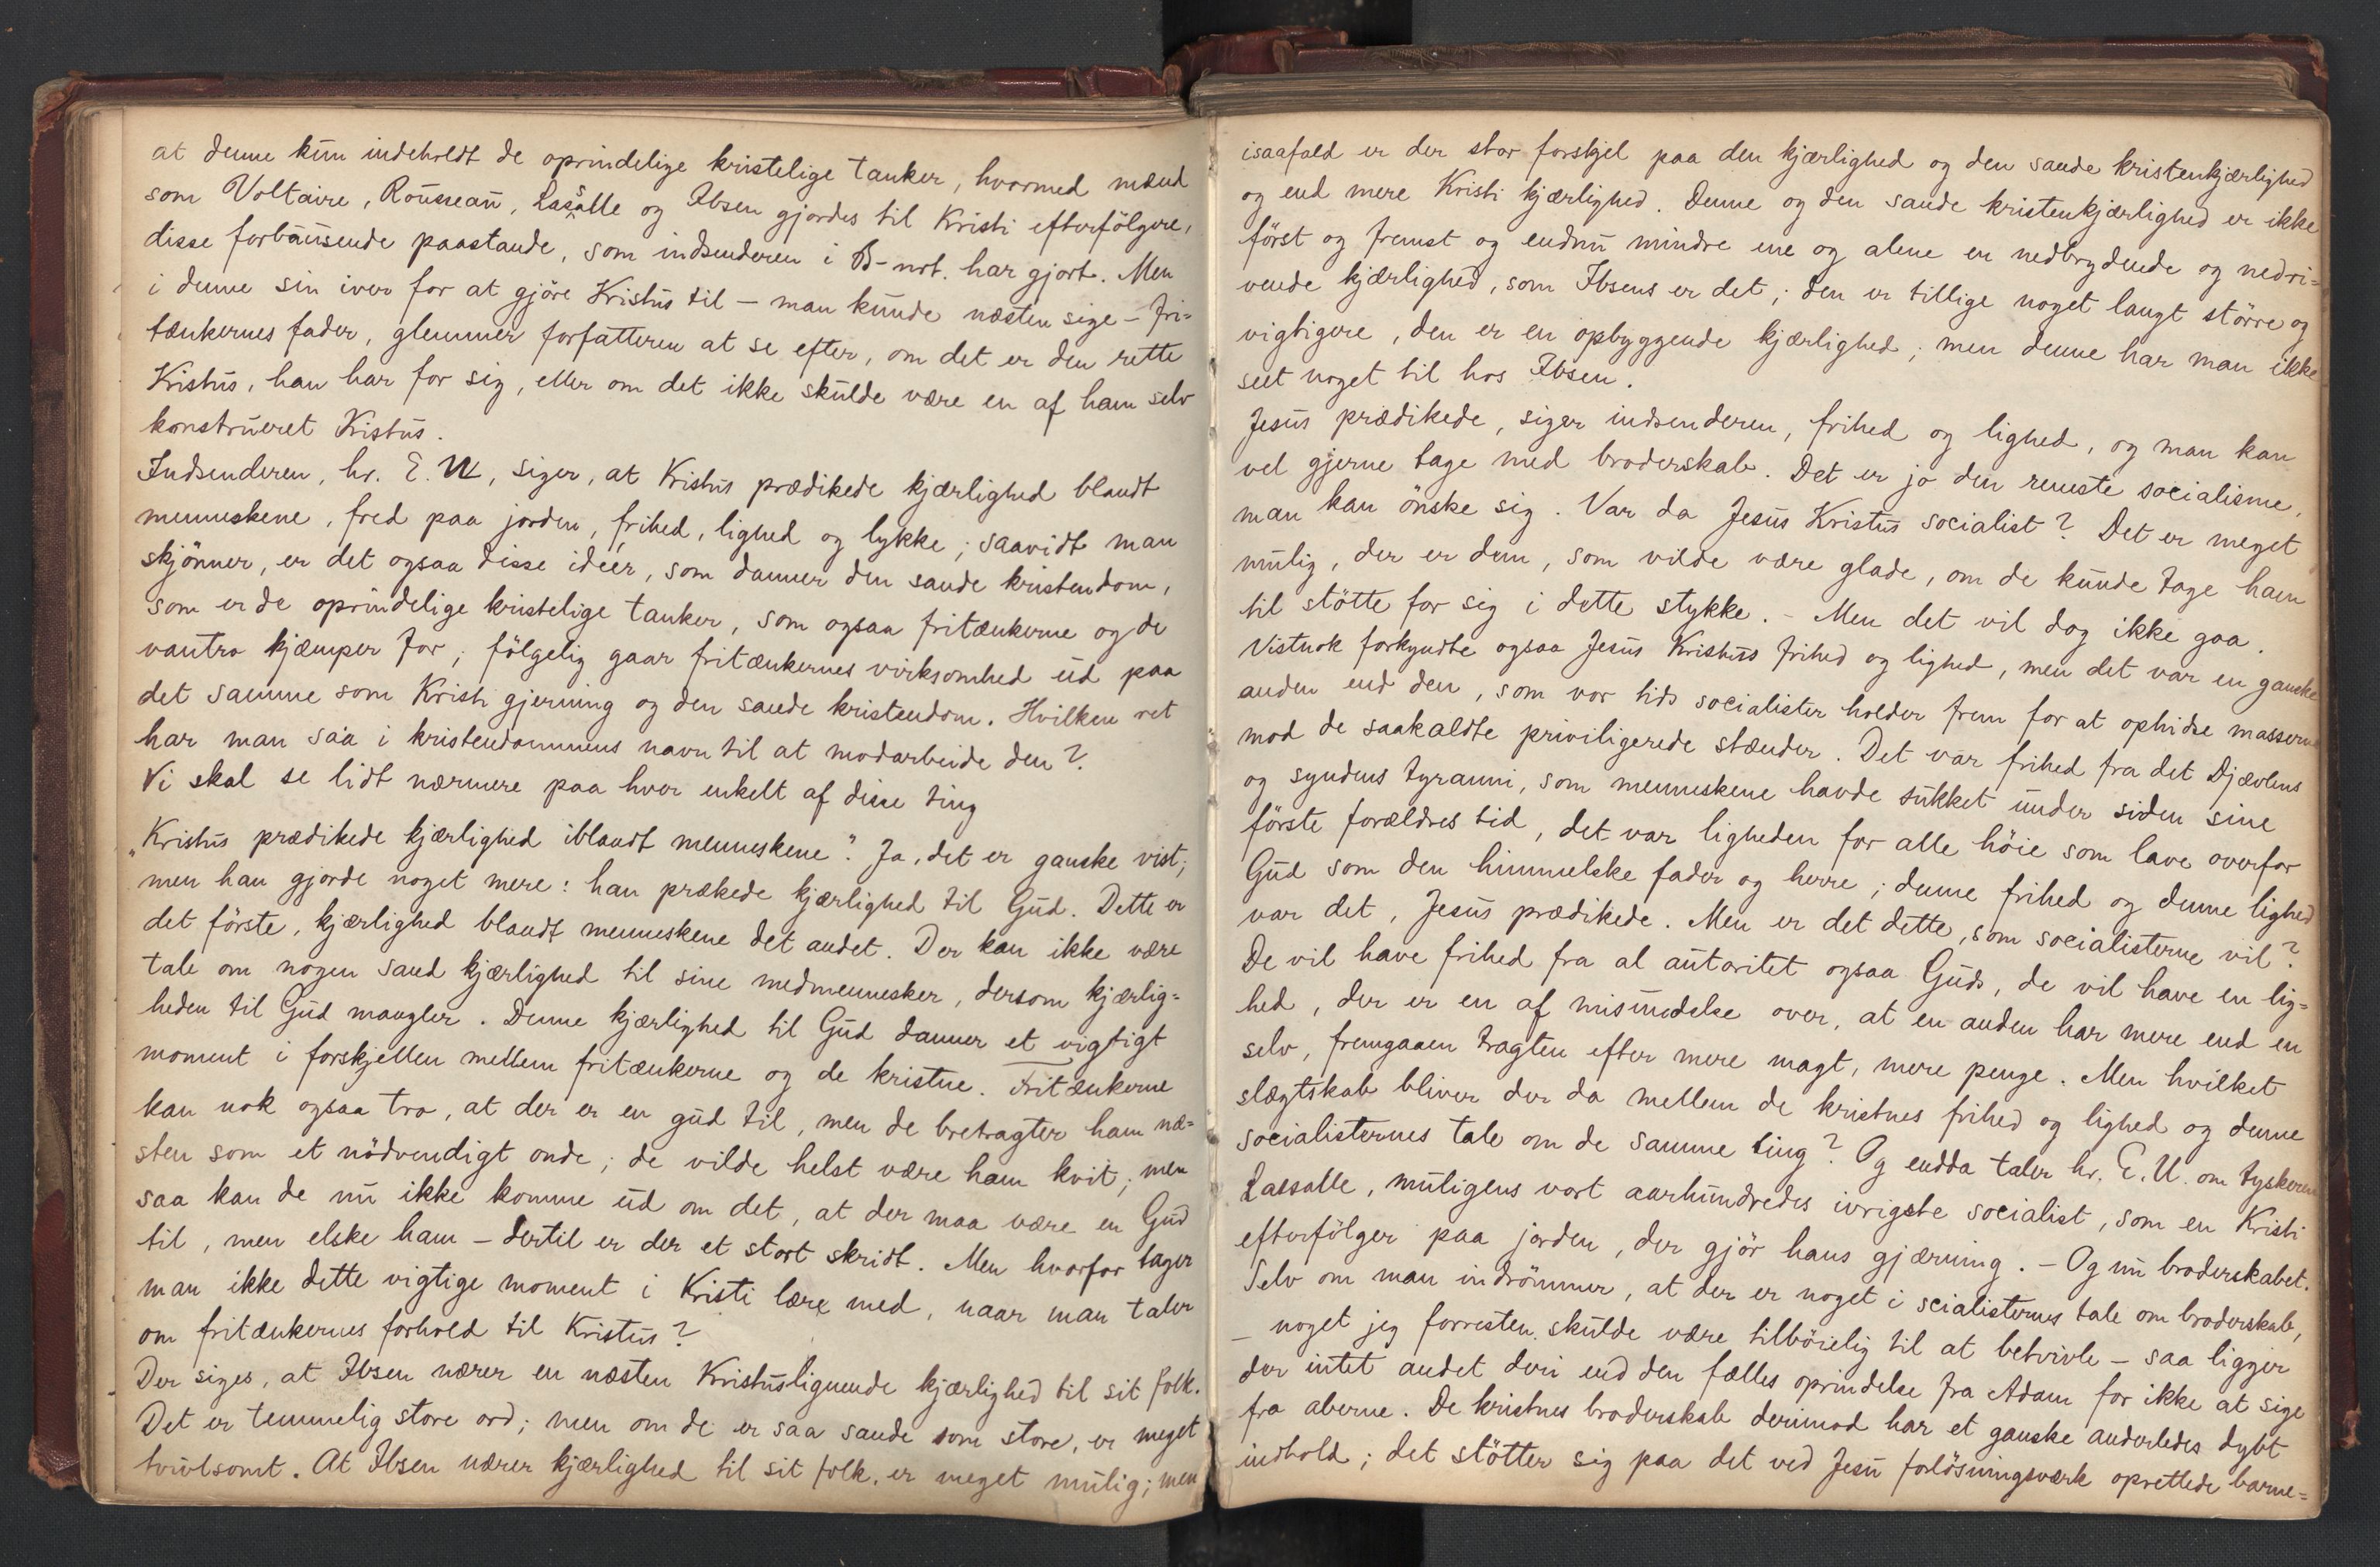 at denne kun indeholdt de oprindelige kristelige tanker, hvormed mænd
som Voltaire, Rousseau, Lassalle og Ibsen gjordes til Kristi efterfölgere,
disse forbausende paastande, som indsenderen i B-nrt. har gjort. Men
i denne sin iver for at gjöre Kristus til – man kunde næsten sige – fri-
tænkernes fader, glemmer forfatteren at se efter, om det er den rette
Kristus, han har for sig, eller om det ikke skulde være en af ham selv
konstrueret Kristus.
Indsenderen, hr. E. U, siger, at Kristus prædikede kjærlighed blandt
menneskene, fred paa jorden, frihed, lighed og lykke; saavidt man
skjönner, er det ogsaa disse idéer, som danner den sande kristendom,
som er de oprindelige kristelige tanker, som ogsaa fritænkerne og de
vantro kjæmper for; fölgelig gaar fritænkernes virksomhed ud paa
det samme som Kristi gjerning og den sande kristendom. Hvilken ret
har man saa i kristendommens navn til at modarbeide den?
Vi skal se lidt nærmere paa hver enkelt af disse ting
„Kristus prædikede kjærlighed iblandt menneskene". Ja, det er ganske vist;
men han gjorde noget mere: han prækede kjærlighed til Gud. Dette er
det förste, kjærlighed blandt menneskene det andet. Der kan ikke være
tale om nogen sand kjærlighed til sine medmennesker, dersom kjærlig-
heden til Gud mangler. Denne kjærlighed til Gud danner et vigtigt
moment i forskjellen mellem fritænkerne og de kristne. Fritænkerne
kan nok ogsaa tro, at der er en gud til, men de betragter ham næ-
sten som et nödvendigt onde; de vilde helst være ham kvit; men
saa kan de nu ikke komme ud om det, at der maa være en Gud
til, men elske ham – dertil er der et stort skridt. Men hvorfor tager
man ikke dette vigtige moment i Kristi lære med, naar man taler
om fritænkernes forhold til Kristus?
Der siges, at Ibsen nærer en næsten Kristuslignende kjærlighed til sit folk.
Det er temmelig store ord; men om de er saa sande som store, er meget
tvivlsomt. At Ibsen nærer kjærlighed til sit folk, er meget mulig; men
isaafald er der stor forskjel paa den kjærlighed og den sande kristenkjærlighed
og end mere Kristi kjærlighed. Denne og den sande kristenkjærlighed er ikke
först og fremst og endnu mindre ene og alene en nedbrydende og nedri-
vende kjærlighed, som Ibsens er det; den er tillige noget langt större og
vigtigere, den er en opbyggende kjærlighed; men denne har man ikke
seet noget til hos Ibsen.
Jesus prædikede, siger indsenderen, frihed og lighed, og man kan
vel gjerne tage med broderskab. Det er jo den reneste socialisme,
man kan önske sig. Var da Jesus Kristus socialist? Det er meget
mulig, der er dem, som vilde være glade, om de kunde tage ham
til stötte for sig i dette stykke. – Men det vil dog ikke gaa.
Vistnok forkyndte ogsaa Jesus Kristus frihed og lighed, men det var en ganske
anden end den, som vor tids socialister holder frem for at ophidse masserne
mod de saakaldte priviligerede stænder. Det var frihed fra det Djævlens
og syndens tyranni, som menneskene havde sukket under siden sine
förste forældres tid, det var ligheden for alle höie som lave overfor
Gud som den himmelske fader og herre; denne frihed og denne lighed
var det, Jesus prædikede. Men er det dette, som socialisterne vil?
De vil have frihed fra al autoritet ogsaa Guds, de vil have en lig-
hed, der er en af misundelse over, at en anden har mere end en
selv, fremgaaen tragten efter mere magt, mere penge. Men hvilket
slægtskab bliver der da mellem de kristnes frihed og lighed og denne
socialisternes tale om de samme ting? Og endda taler hr. E. U. om tyskeren
Lassalle, muligens vort aarhundredes ivrigste socialist, som en Kristi
efterfölger paa jorden, der gjör hans gjærning. – Og nu broderskabet.
Selv om man indrömmer, at der er noget i scialisternes tale om broderskab,
– noget jeg forresten skulde være tilböielig til at betvivle – saa ligger
der intet andet deri end den fælles oprindelse fra Adam for ikke at sige
fra aberne. De kristnes broderskab derimod har et ganske anderledes dybt
indhold; det stötter sig paa det ved Jesu forlösningsværk oprettede barne-